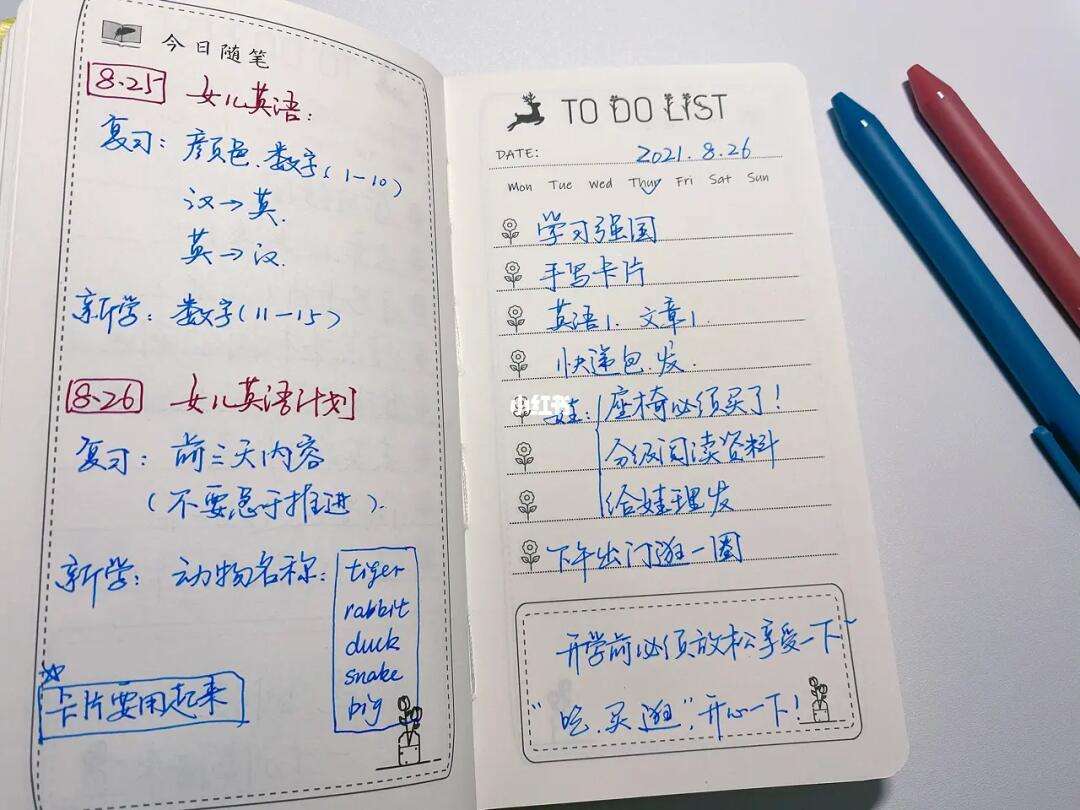 今日随笔
8.25 女儿英语:
复习: 颜色.数字(1-10)
汉→英.
英→汉.
新学: 数字(11-15)
8.26 女儿英语计划
复习: 前三天内容
(不要急于推进).
新学: 动物名称:
tiger
rabbit
duck
snake
pig
卡片要用起来
TO DO LIST
DATE: 2021.8.26
Mon Tue Wed Thur Fri Sat Sun
学习强国
手写卡片
英语1. 文章1.
快递包.发.
小红书
娃: 座椅必须买了!
分级阅读资料
给娃理发
下午出门逛一圈
开学前必须放松享受一下~
"吃.买.逛",开心一下!